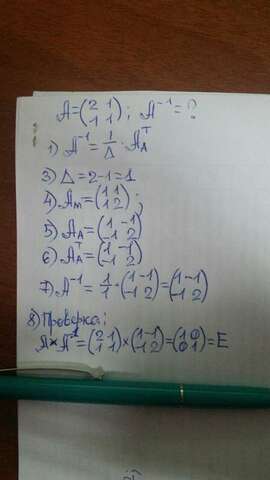 A=(2 1
1 1); A⁻¹=?
1) A⁻¹=1/Δ·Aᴀᵀ
3) Δ=2-1=1
4) Aм=(1 1
1 2);
5) Aᴀ=(1 -1
-1 2)
6) Aᴀᵀ=(1 -1
-1 2)
7) A⁻¹=1/1·(1 -1
-1 2)=(1 -1
-1 2)
8) Проверка:
A×A⁻¹=(2 1
1 1)×(1 -1
-1 2)=(1 0
0 1)=E